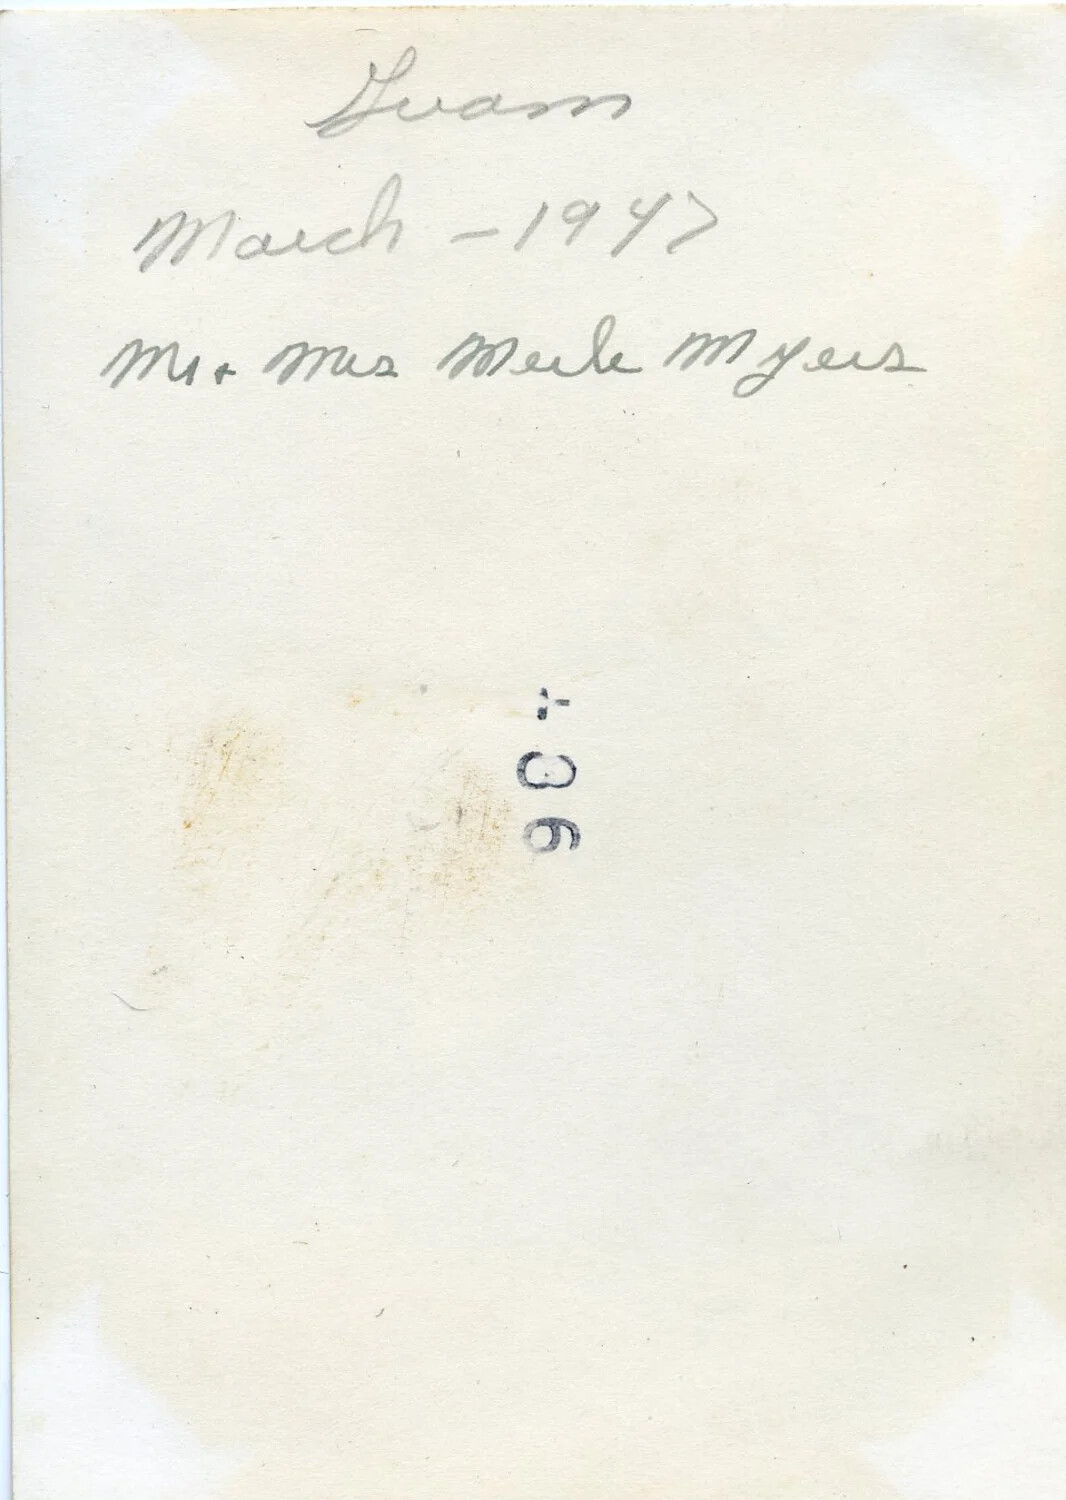 Guam
March - 1947
Mr + Mrs Merle Myers